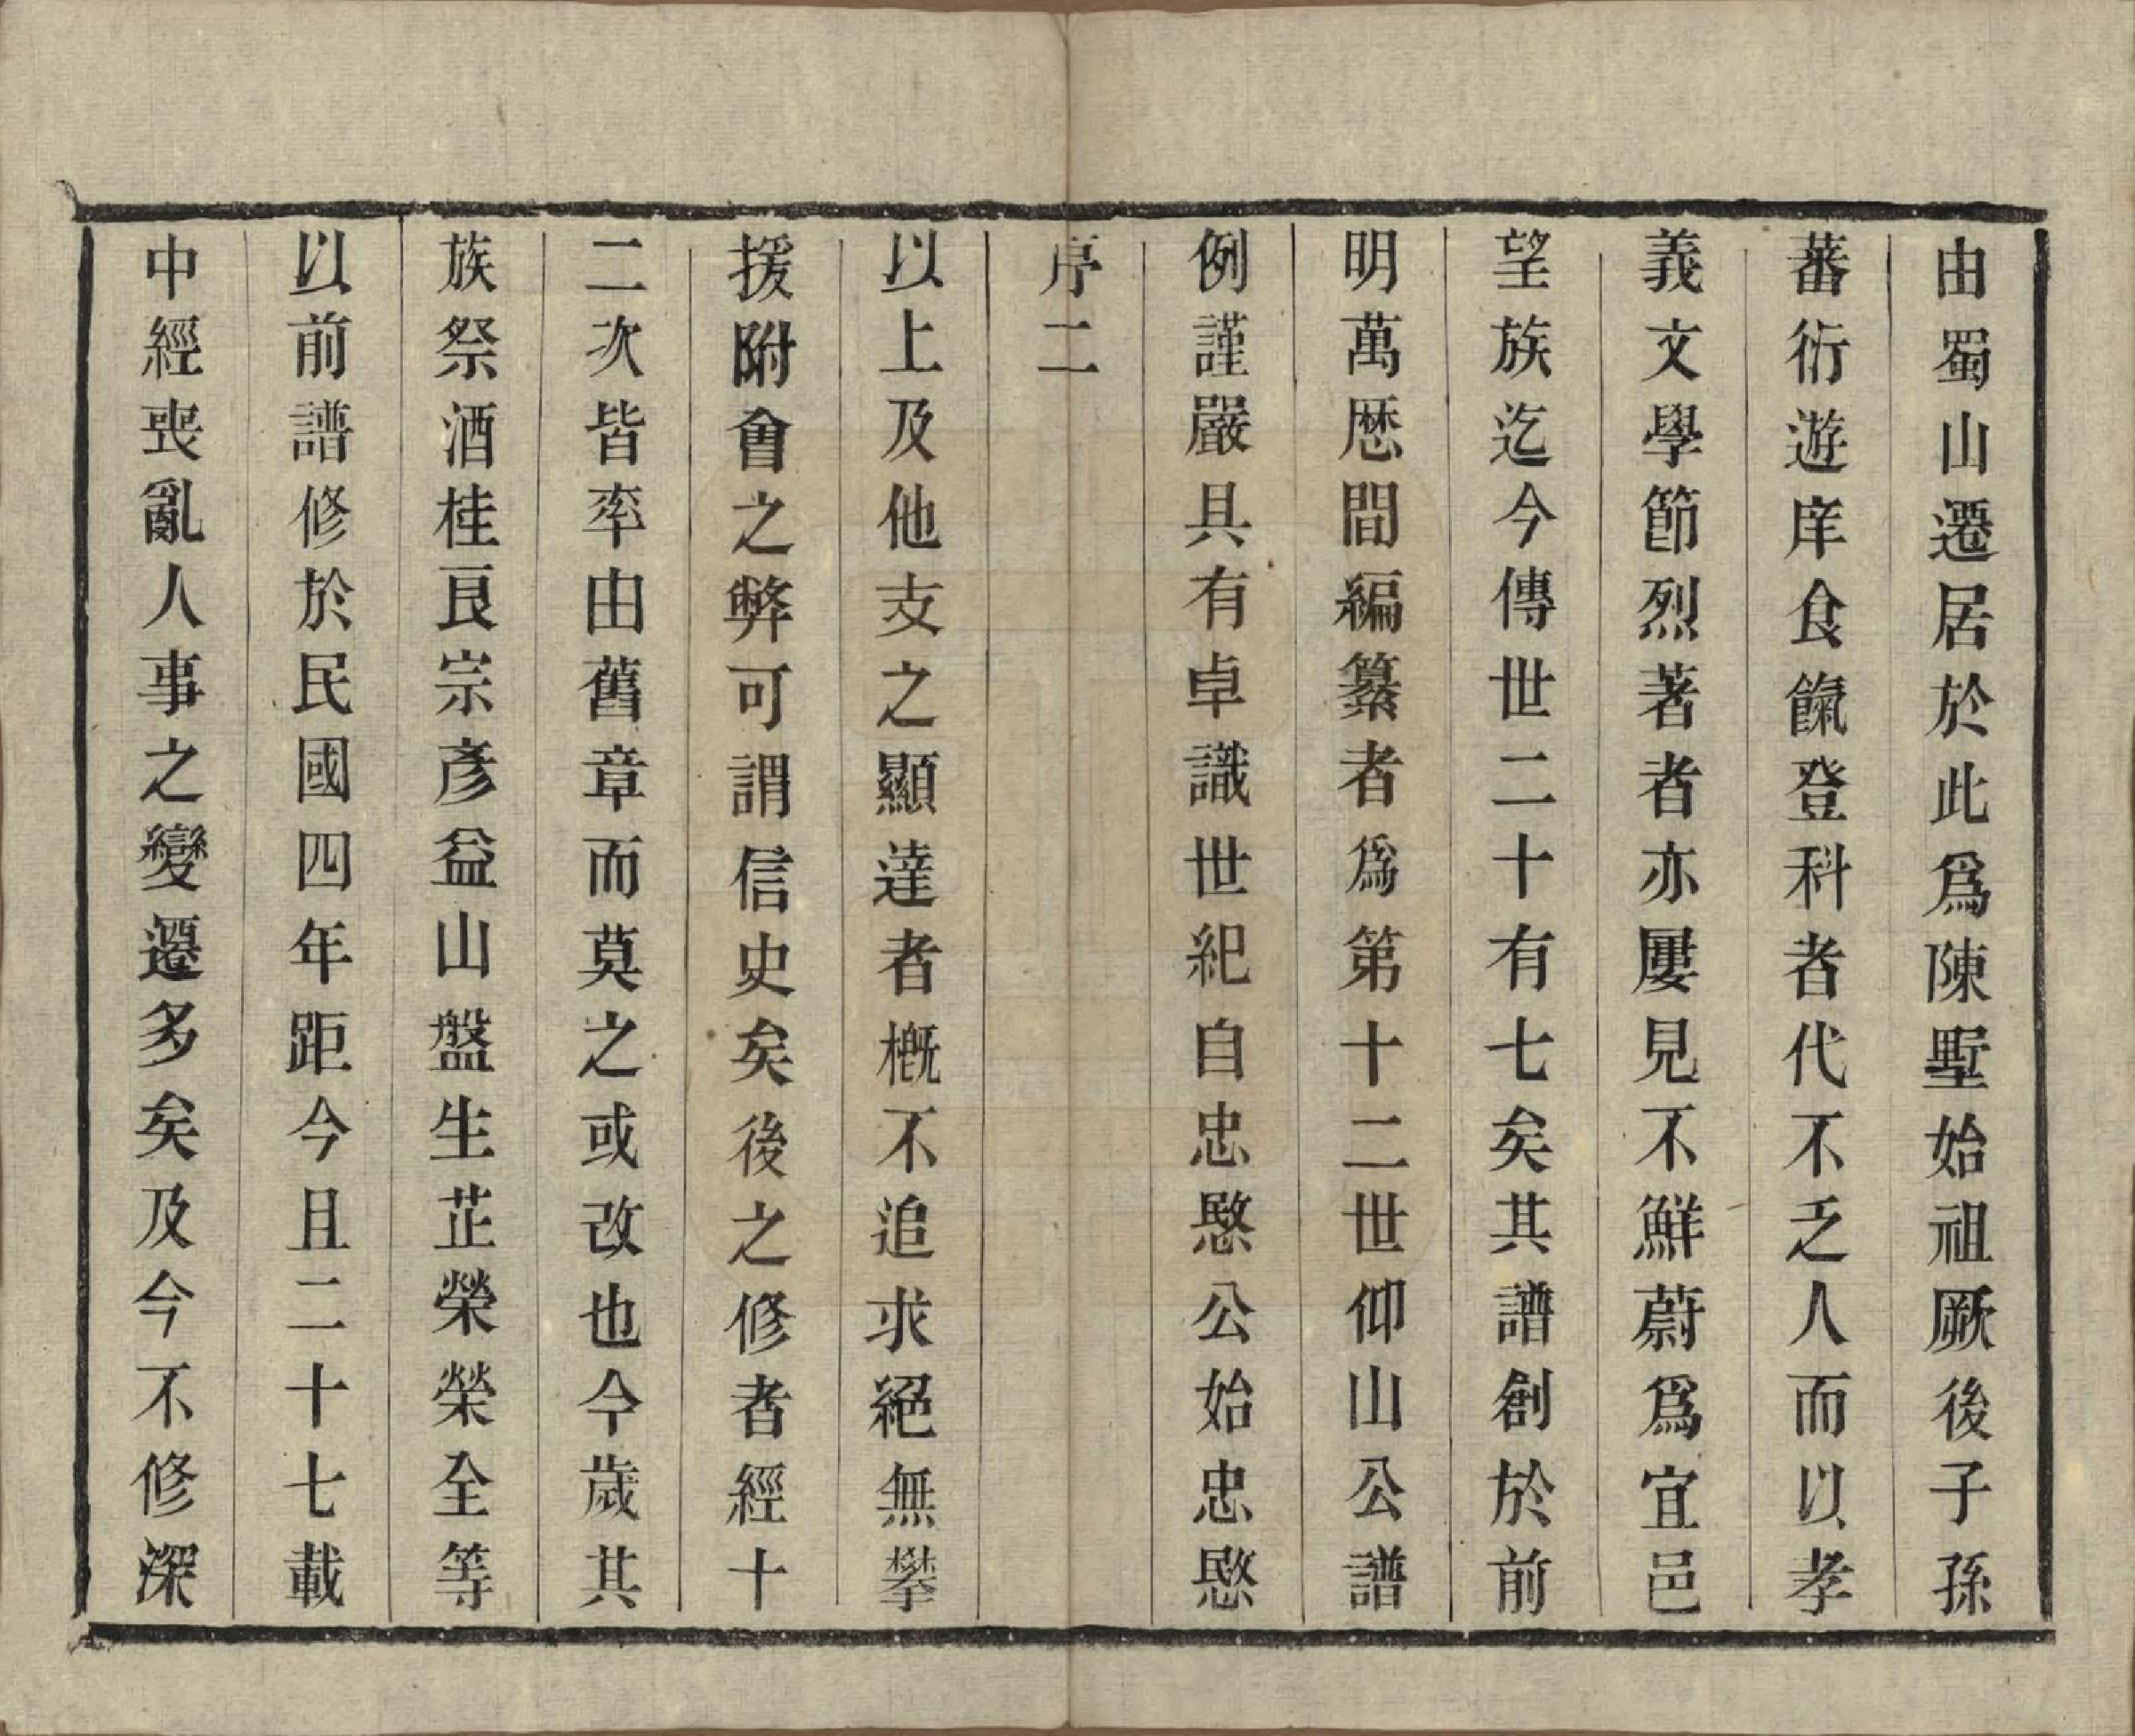 由蜀山遷居於此爲陳墅始祖厥後子孫
蕃衍遊庠食餼登科者代不乏人而以孝
義文學節烈著者亦屢見不鮮蔚爲宜邑
望族迄今傳世二十有七矣其譜創於前
明萬厯間編纂者爲第十二世仰山公譜
例謹嚴具有卓識世紀自忠愍公始忠愍
序二
以上及他支之顯達者概不追求絕無攀
援附會之弊可謂信史矣後之修者經十
二次皆率由舊章而莫之或改也今歲其
族祭酒桂良宗彥益山盤生芷榮榮全等
以前譜修於民國四年距今且二十七載
中經喪亂人事之變遷多矣及今不修深